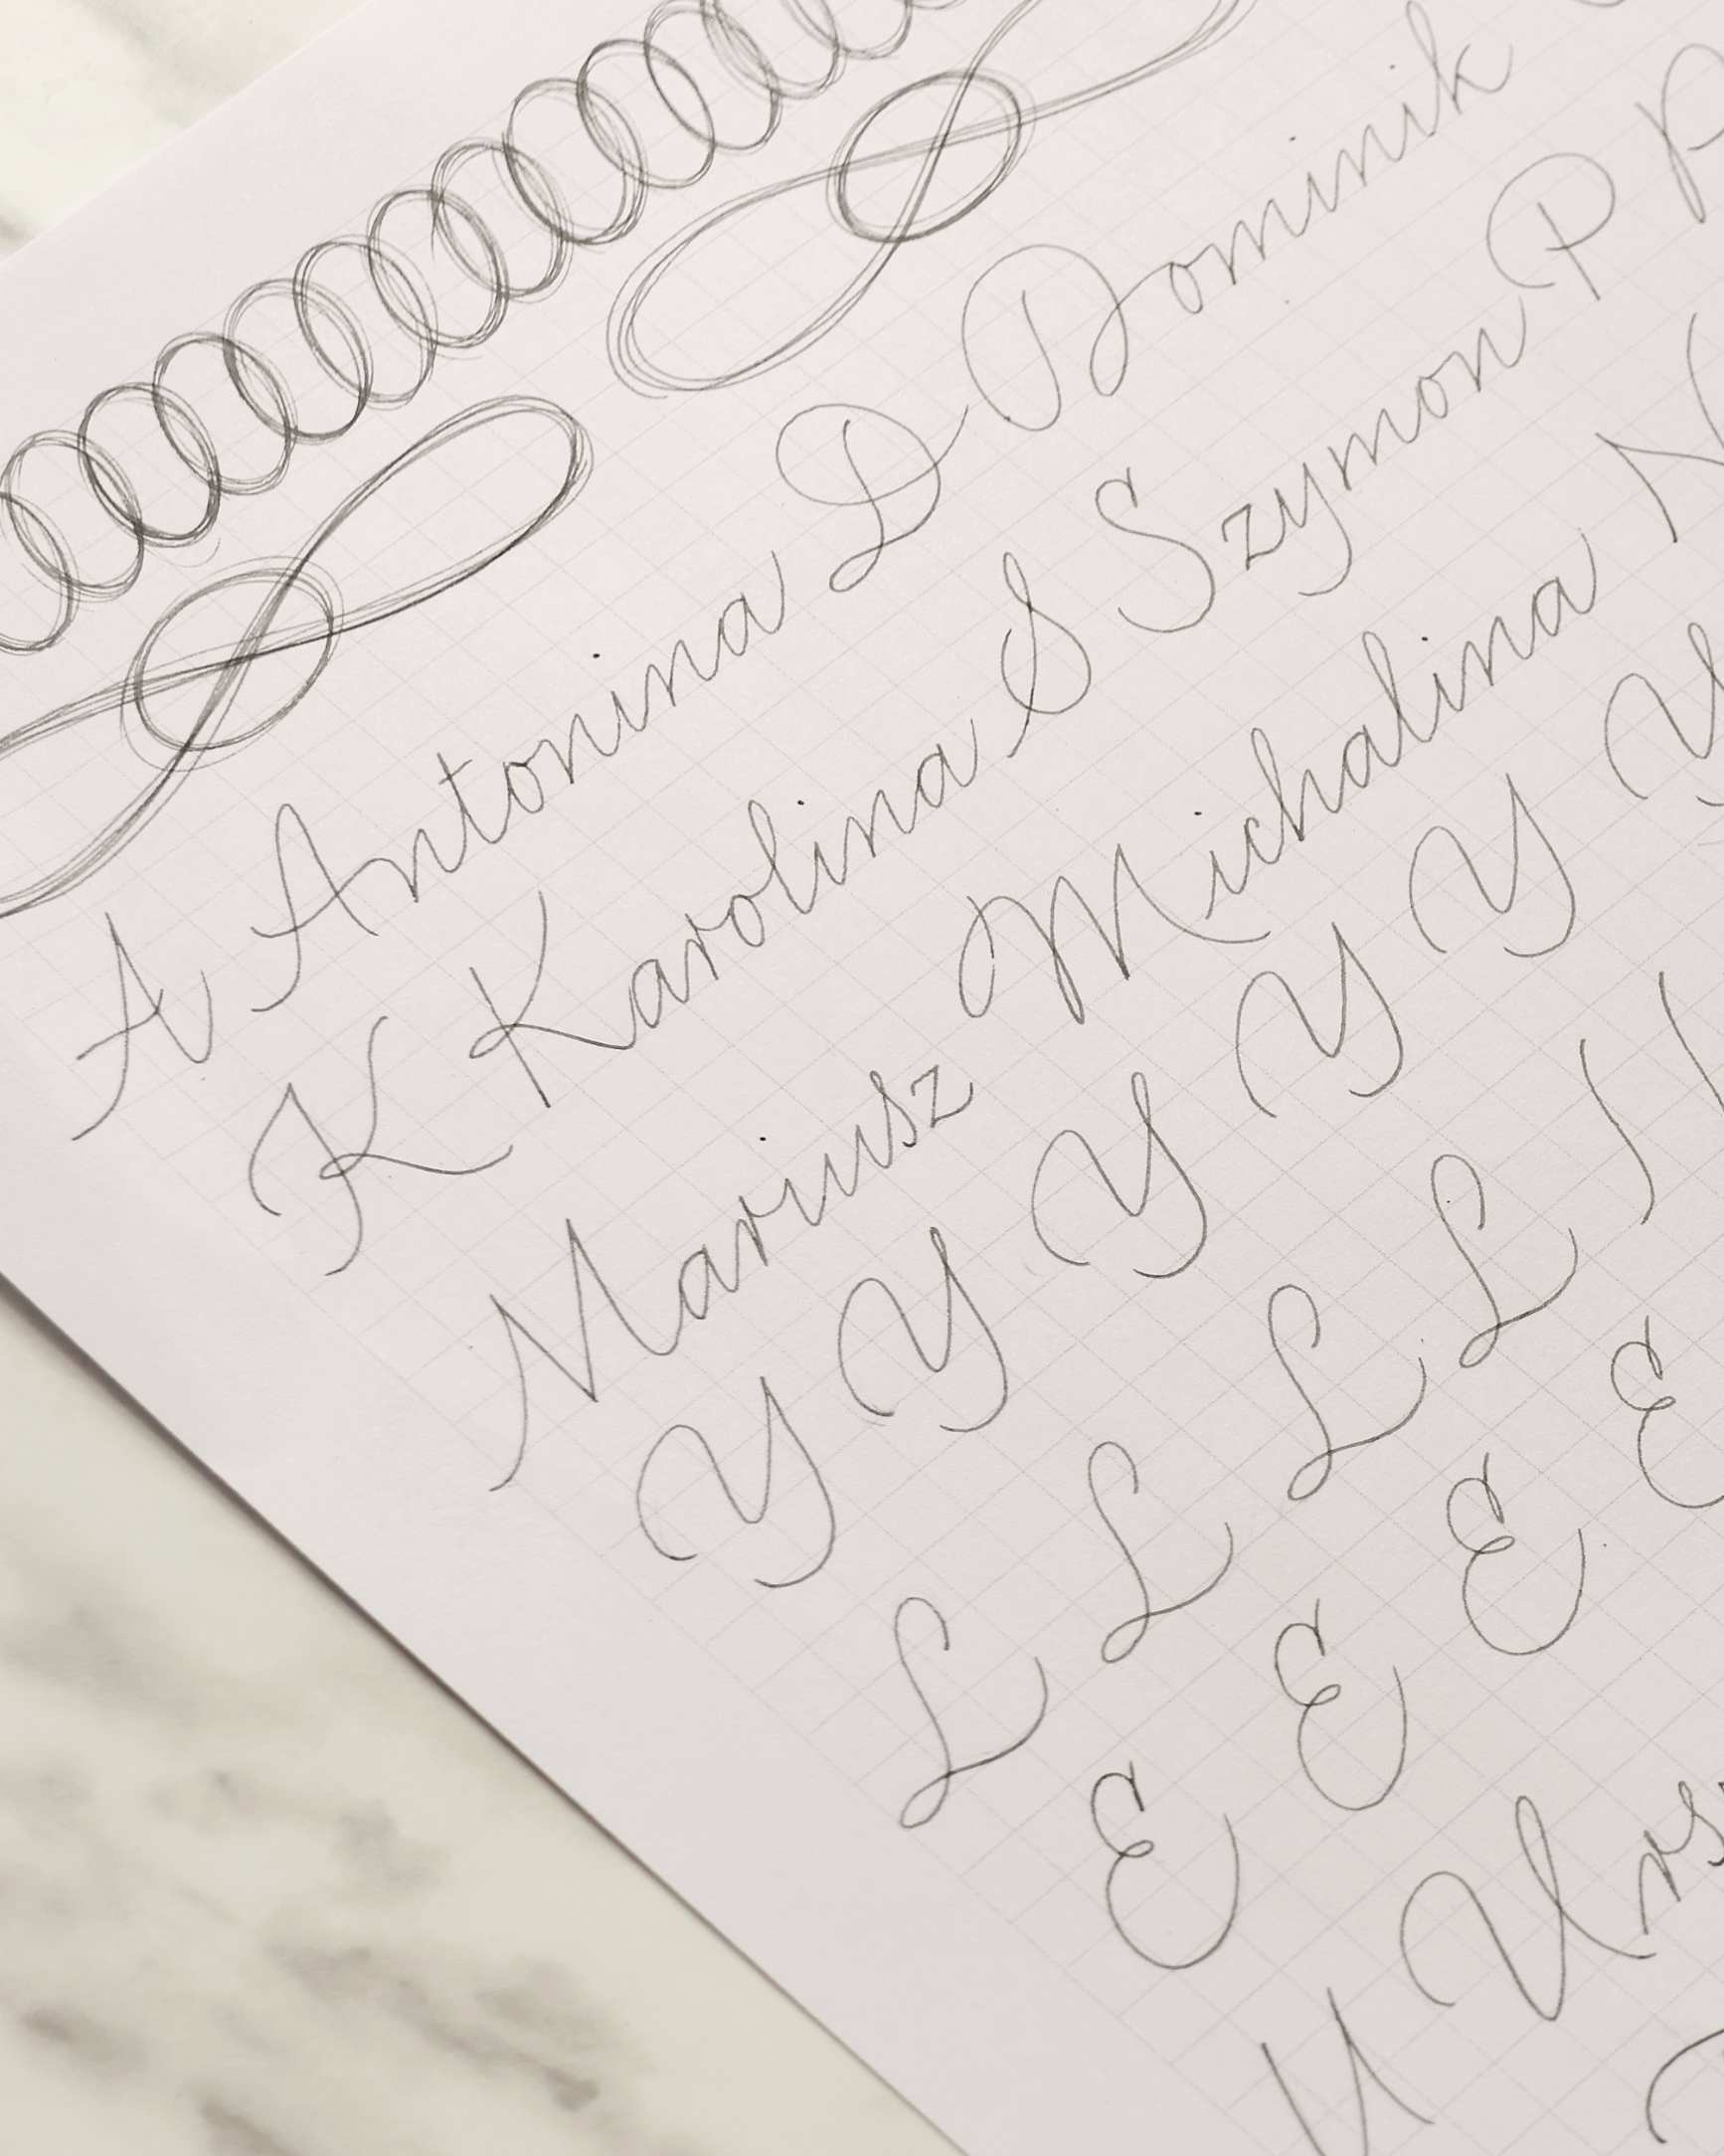 A Antonina D Dominik
K Karolina S Szymon P P
Mariusz Michalina N
Y Y Y Y Y Y
L L L L
E E E E
U U